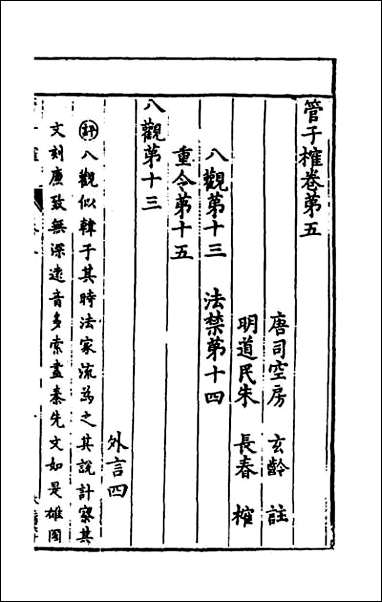 管子榷卷第五
唐司空房　玄齡　註
明道民朱　長春　榷
八觀第十三　法禁第十四
重令第十五
八觀第十三　外言四
評八觀似韓子其時法家流為之其說計察其
文刻廉致無深遠音多索盡秦先文如是雄國